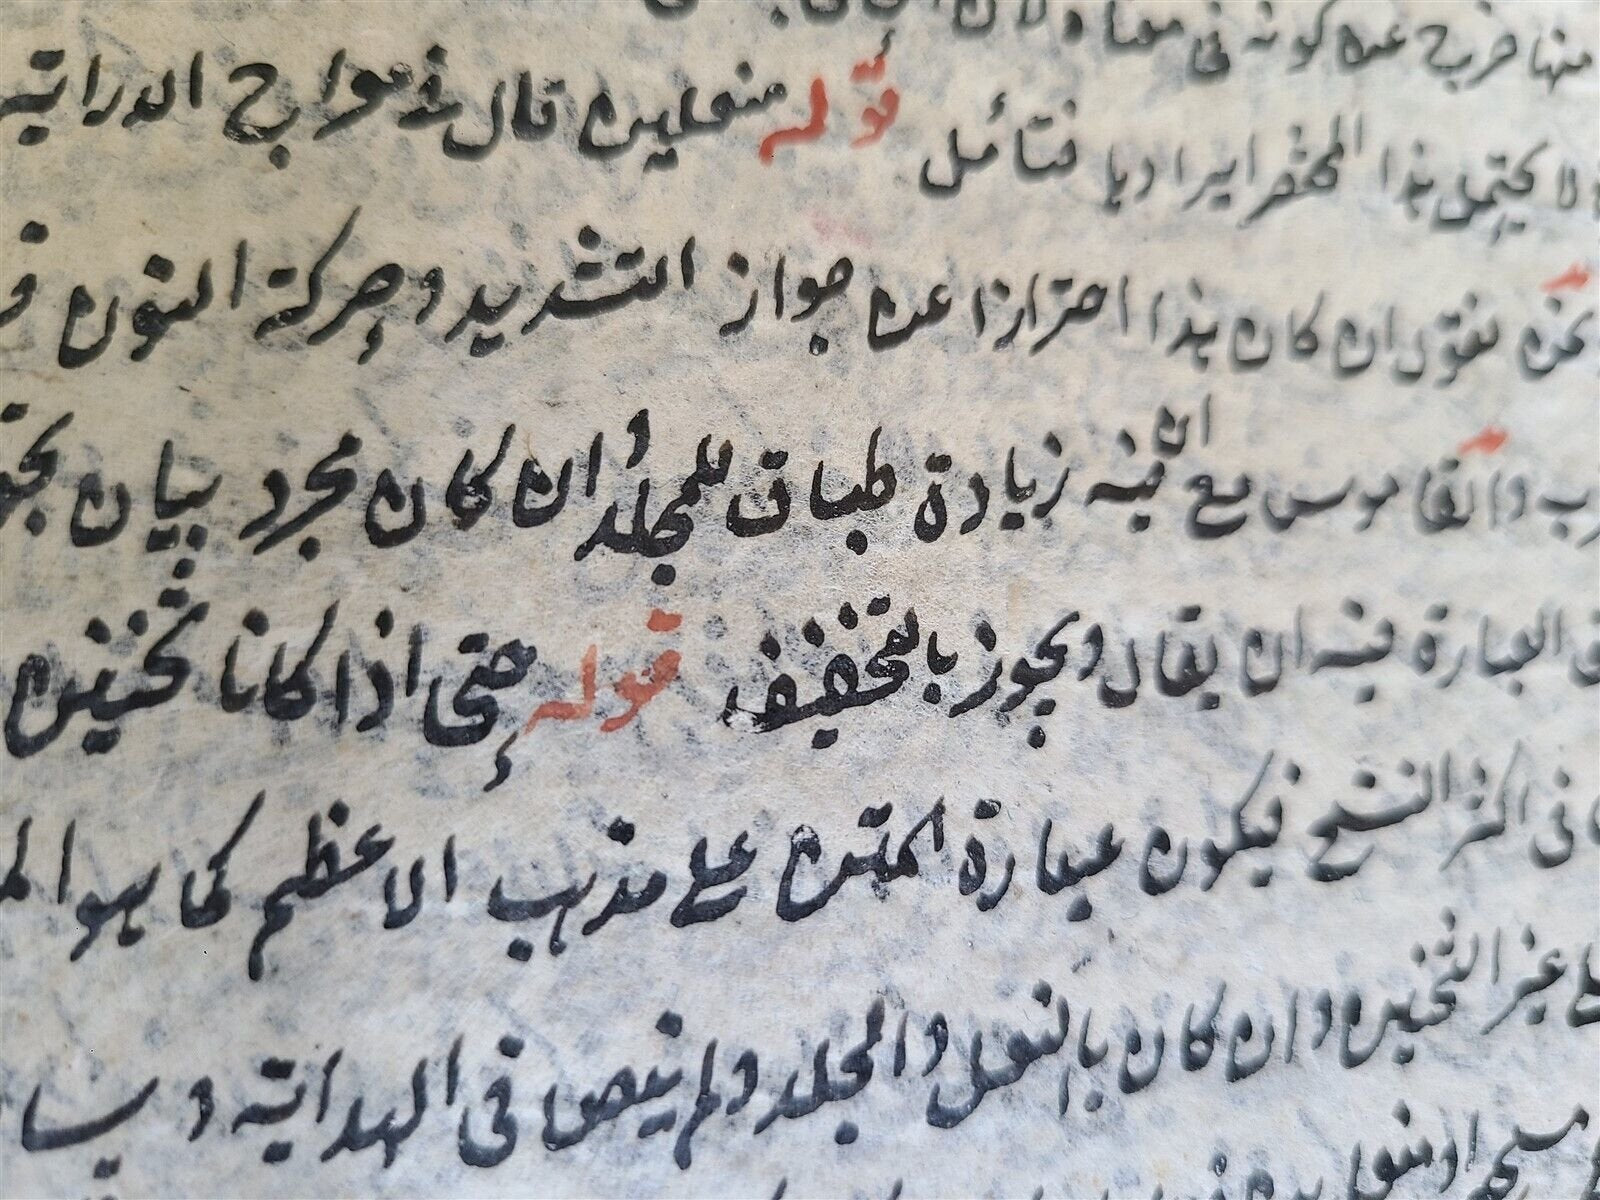 منها خرج عن كونه في
لا يحتمل هذا المختصر ايرادها فتأمل قوله منعلين قال في معراج الدراية
نحن نقول ان كان هذا احترازا عن جواز التشديد وحركة النون
والقاموس مع ان فيه زيادة طبات للمجلد وان كان مجرد بيان
العبارة فيه ان يقال ويجوز بالتخفيف قوله حتى اذا كانا ثخينين
في اكثر النسخ فيكون عبارة المتن على مذهب الاعظم كما هو
غير الثخين وان كان بالنعل والمجلد ولم ينص في الهداية و